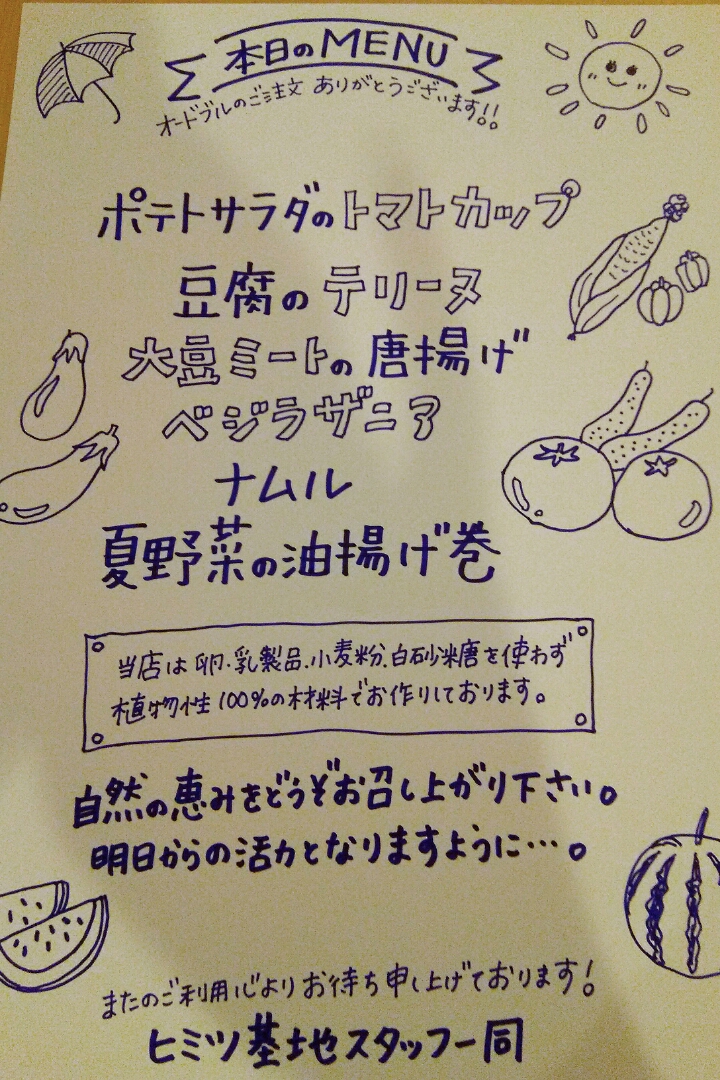 本日のMENU
オードブルのご注文 ありがとうございます!!
ポテトサラダのトマトカップ
豆腐のテリーヌ
大豆ミートの唐揚げ
ベジラザニア
ナムル
夏野菜の油揚げ巻
当店は卵.乳製品.小麦粉.白砂糖を使わず
植物性100%の材料でお作りしております。
自然の恵みをどうぞお召し上がり下さい。
明日からの活力となりますように…。
またのご利用心よりお待ち申し上げております!
ヒミツ基地スタッフ一同